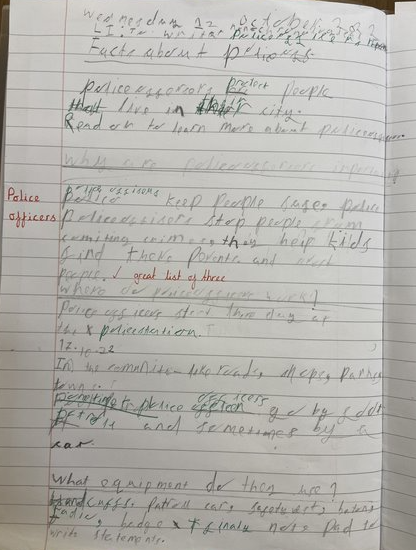 Wednesday 12 October
L.I. To write
Facts about polices
police officers protect people
that live in their city.
Read on to learn more about policeofficers.
Why are policeofficers
Police officers
police officers keep people safe. police
policeofficers stop people from
comiting crimes, they help kids
find there parents and
people. ✓ great list of three
where do policeofficers work?
Police officers start there day at
the x policestation.
12.10.22
In the community like roads, shops, parks,
towns.
police officers go by foot
and sometimes by a
car.
What equipment do they use?
handcuffs, patroll car, safety vest, batons
radio, badge x finaly note pad to
write statements.